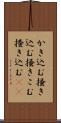 かき込む掻き
込む掻きこむ
搔き込む